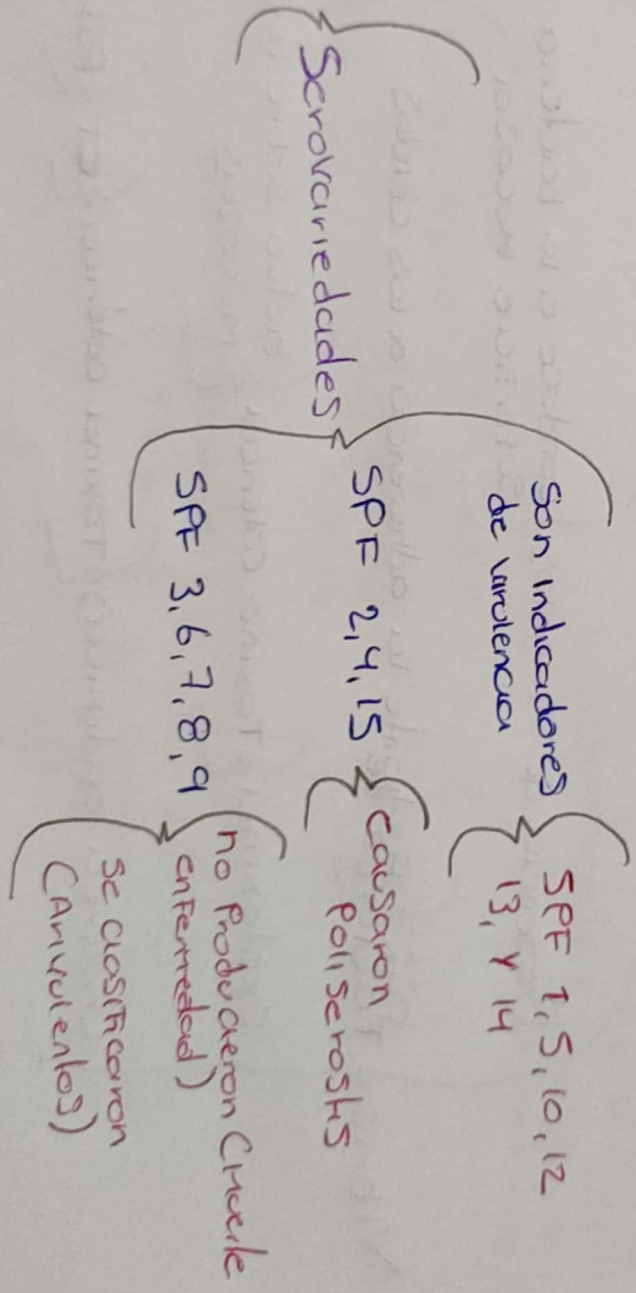 Serovariedades
Son indicadores
de virulencia
SPF 1, 5, 10, 12
13, Y 14
SPF 2, 4, 15
Causaron
Poliserositis
SPF 3, 6, 7, 8, 9
no Produceron (Muerte
enfermedad)
se clasificaron
(Anvulentos)